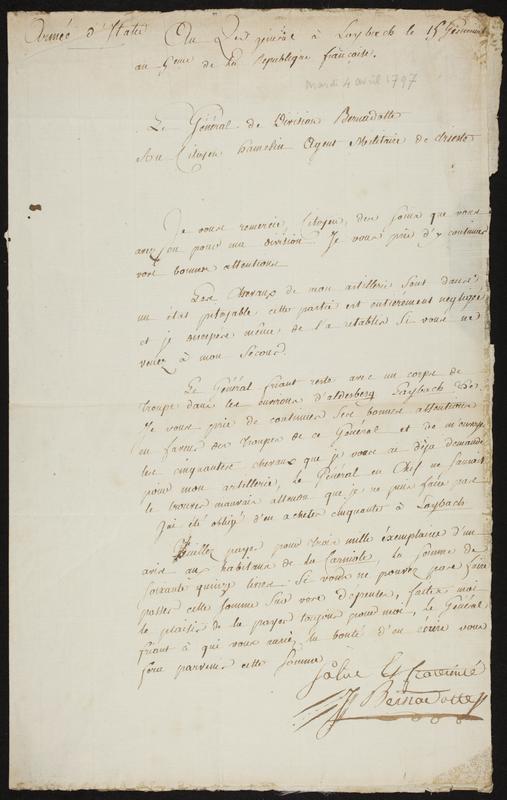 Armée d'Italie
Au Qer général à Laybach le 15 Germinal
an 5eme de la République française.
Mardi 4 avril 1797
Le Général de Division Bernadotte
Au Citoyen hamelin Agent Militaire de trieste
Je vous remercie, Citoyen, des soins que vous
avez eu pour ma division. Je vous prie d'y continuer
vos bonnes attentions
Les Chevaux de mon artillerie sont dans
un état pitoyable cette partie est entièrement négligée
et je désespère même de la rétablir si vous ne
venez à mon secours.
Le Général friant reste avec un corps de
troupe dans les environs d'adelsberg Laybach
Je vous prie de continuer ses bonnes attentions
en faveur des troupes de ce Général et de m'envoyer
les cinquantes chevaux que je vous ai déja demandé
pour mon artillerie, le Général en Chef ne saurait
le trouver mauvais attendu que je ne puis faire pas
J'ai été obligé d'en acheter cinquante à Laybach
Veuillez payer pour trois mille exemplaires d'un
avis aux habitans de la Carniole, la somme de
soixante quinze livres si vous ne pouvez pas faire
passer cette somme sur votre dépense, faites moi
le plaisir de la payer toujours pour moi, le Général
friant à qui vous aurez la bonté d'en écrire vous
fera parvenir cette somme
Salut Et fraternité
J Bernadotte